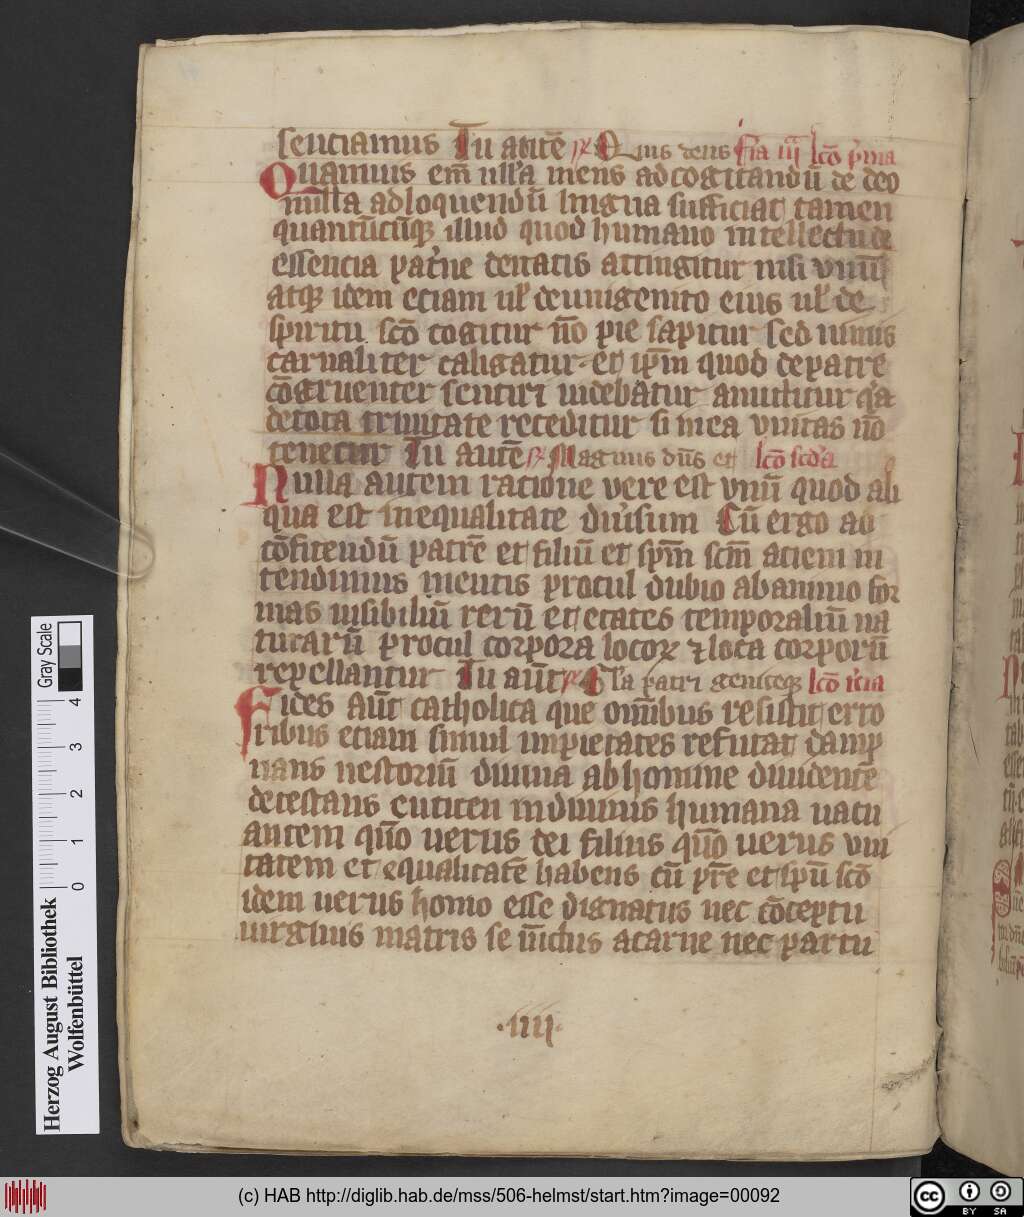 senciamus Tu autē ℟ Quis deus Fīa iii Lcō p̄ma
Quamuis em̄ nll'a mens ad cogitandū de deo
nulla ad loquendū lingua sufficiat tamen
quantūcūqꝫ illud quod humano intellectu de
essencia pat̄ne deitatis attingitur nisi vnū
atqꝫ idem eciam ul' de unigenito eius ul' de
spiritu scō cogitur nō pie sapitur sed nimis
carnaliter caligatur et ip̄m quod de patre
cōgruenter sentiri uidebatur amittitur q'a
de tota trinitate receditur si in ea vnitas nō
tenetur Tu autē ℟ Magnus dūs et Lcō scd'a
Nulla autem racione vere est vnū quod ali
qua est inequalitate diu'sum Cū ergo ad
cōfitendū patrē et filiū et sp̄m scm̄ aciem in
tendimus mentis procul dubio ab animo for
mas uisibiliū rerū et etates temporaliū na
turarū procul corpora locoꝝ ⁊ loca corporū
repellantur Tu aūt ℟ Gl'a patri geniteqꝫ Lcō t'cia
Fides aūt catholica que om̄ibus resistit erro
ribus eciam simul impietates refutat damp
nans nestoriū diuina ab homine diuidentē
detestans euticen in diuinis humana uacu
antem qn̄o uerus dei filius qn̄o uerus vni
tatem et equalitatē habens cū pr̄e et sp̄u scō
idem uerus homo esse dignatus nec cōceptu
uirginis matris se iūctus a carne nec partu
·iiii·
Herzog August Bibliothek
Wolfenbüttel
0 1 2 3 4
Gray Scale
(c) HAB http://diglib.hab.de/mss/506-helmst/start.htm?image=00092
cc BY SA